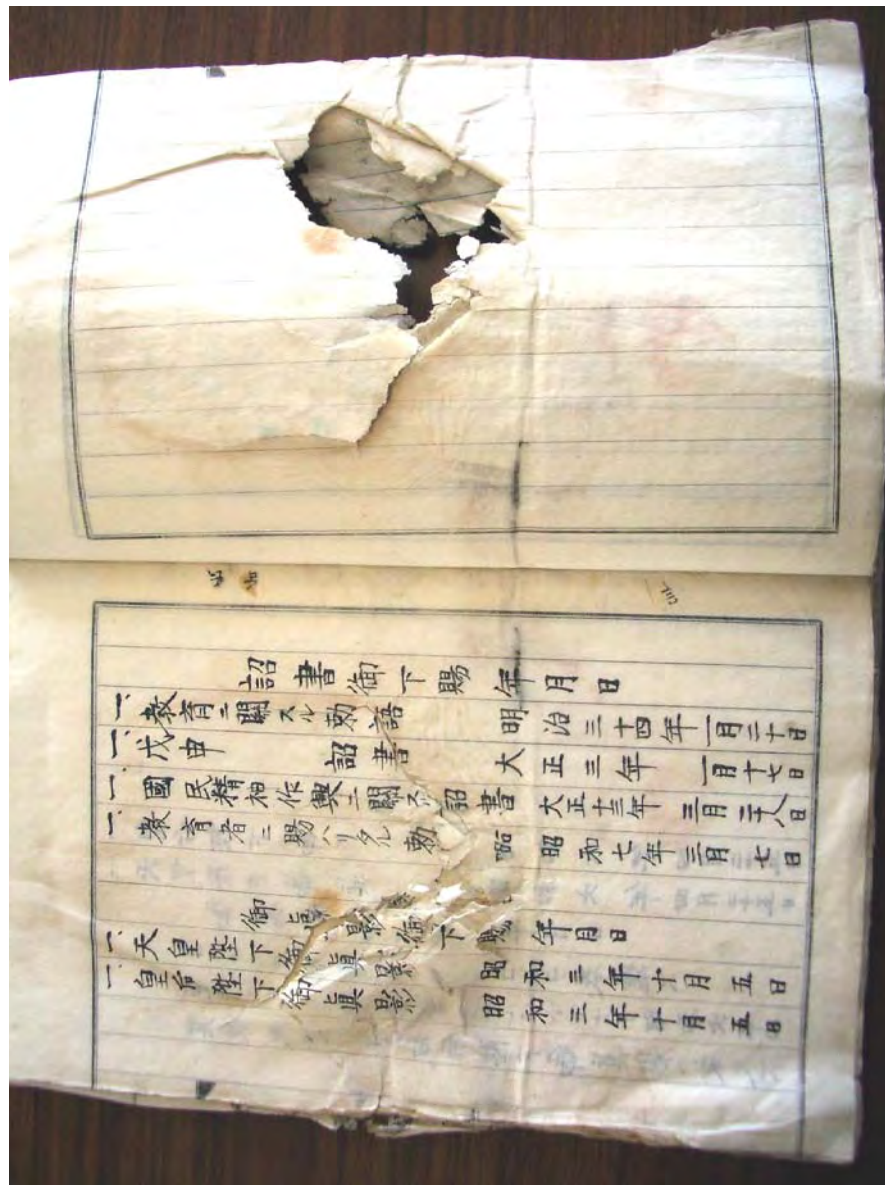 詔書御下賜年月日
一、教育ニ關スル勅語 明治三十四年一月二十日
一、戊申詔書 大正三年一月十七日
一、國民精神作興ニ關スル詔書 大正十三年三月二十八日
一、教育者ニ賜ハリタル勅語 昭和七年三月七日
御眞影御下賜年月日
一、天皇陛下御眞影 昭和三年十月五日
一、皇后陛下御眞影 昭和三年十月五日